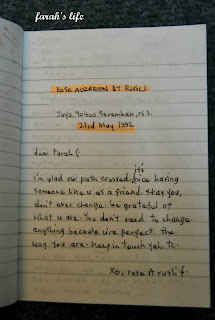 farah's life
ROSA AZREEN BT RUSLI
Jaya, 70400 Seremban, N.S.
23rd May 1992
dear Farah (:
I'm glad our path crossed. nice having
someone like u as a friend. stay you,
don't ever change. be grateful of
what u are. You don't need to change
anything because u're perfect the
way you are. keep in touch yah. tc.
Xo, rosa A. rusli